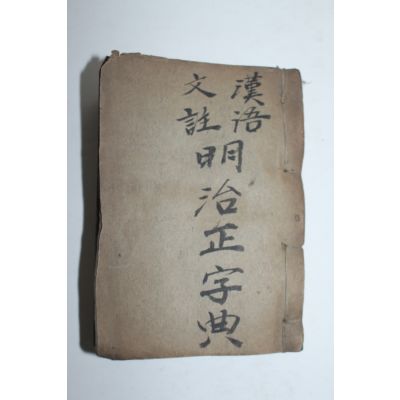 漢語
文註
明治正字典